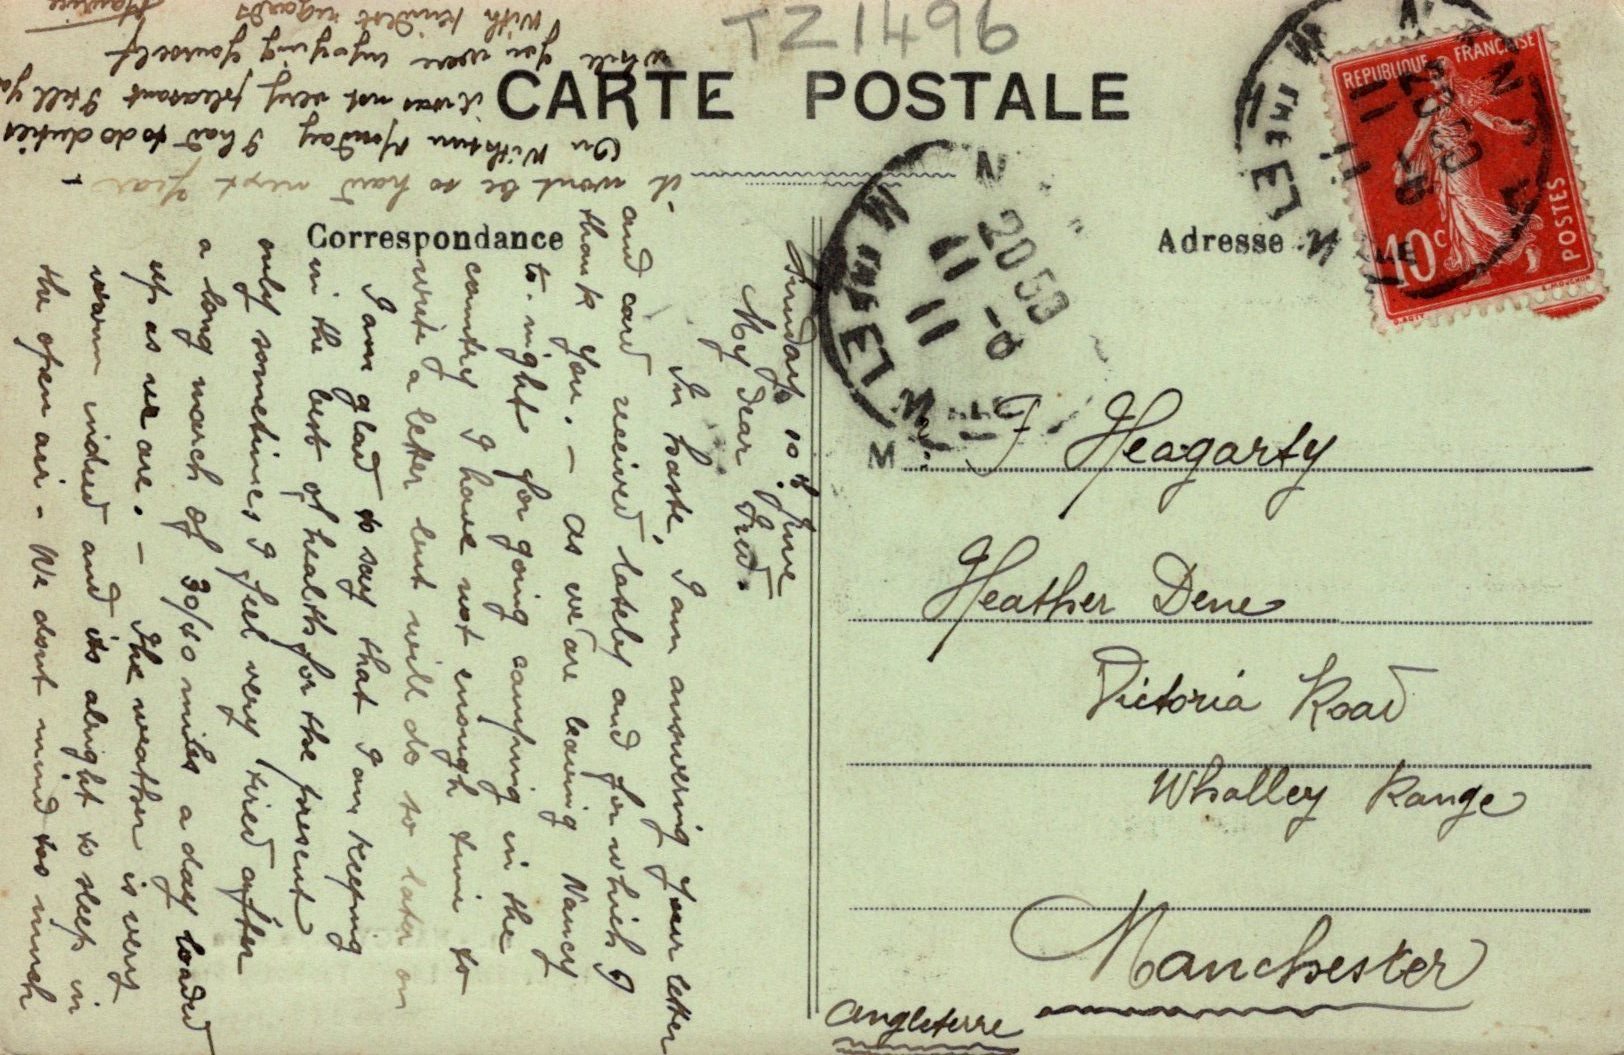 TZ1496
CARTE POSTALE
Correspondance
Adresse
RÉPUBLIQUE FRANÇAISE
10c
POSTES
NANCY
20 50
11 - 6
11
MEURTHE
M. F Heagarty
Heather Dene
Victoria Road
Whalley Range
Manchester
Angleterre
Sunday 10th June
My dear Fred.
In haste, I am answering your letter
and card received lately and for which I
thank you. – As we are leaving Nancy
to-night for going camping in the
country I have not enough time to
write a letter but will do so later on
I am glad to say that I am keeping
in the best of health for the present
only sometimes I feel very tired after
a long march of 30/40 miles a day loaded
up as we are. – The weather is very
warm indeed and its alright to sleep in
the open air – We dont mind too much
it wont be so hard next year –
On Withsun Monday I had to do duties
it was not very pleasant I tell you
while you were enjoying yourself
With kindest regards
Maurice